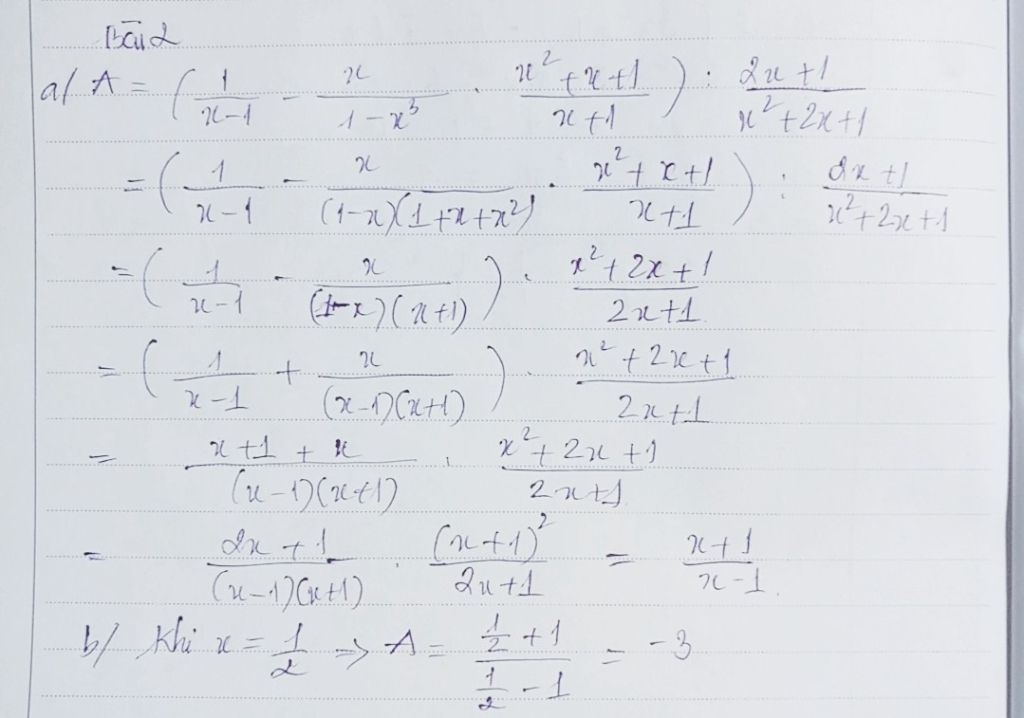 Bài 2
a/ A = ( \frac{1}{x-1} - \frac{x}{1-x^3} . \frac{x^2+x+1}{x+1} ) : \frac{2x+1}{x^2+2x+1}
= ( \frac{1}{x-1} - \frac{x}{(1-x)(1+x+x^2)} . \frac{x^2+x+1}{x+1} ) : \frac{2x+1}{x^2+2x+1}
= ( \frac{1}{x-1} - \frac{x}{(1-x)(x+1)} ) . \frac{x^2+2x+1}{2x+1}
= ( \frac{1}{x-1} + \frac{x}{(x-1)(x+1)} ) . \frac{x^2+2x+1}{2x+1}
= \frac{x+1+x}{(x-1)(x+1)} . \frac{x^2+2x+1}{2x+1}
= \frac{2x+1}{(x-1)(x+1)} . \frac{(x+1)^2}{2x+1} = \frac{x+1}{x-1}.
b/ Khi x = \frac{1}{2} => A = \frac{\frac{1}{2}+1}{\frac{1}{2}-1} = -3